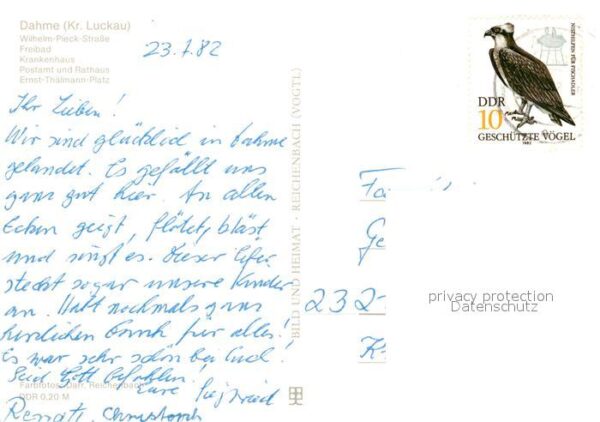 Dahme (Kr. Luckau)
Wilhelm-Pieck-Straße
Freibad
Krankenhaus
Postamt und Rathaus
Ernst-Thälmann-Platz
23.7.82
Ihr Lieben!
Wir sind glücklich in Dahme
gelandet. Es gefällt uns
ganz gut hier. An allen
Ecken geigt, flötet, bläst
und singt es. Dieser Eifer
steckt sogar unsere Kinder
an. Habt nochmals ganz
herzlichen Dank für alles!
Es war sehr schön bei Euch!
Seid Gott befohlen!
Eure Siegfried
Renate, Christoph
Farbfotos: Darr, Reichenbach
DDR 0,20 M
BILD UND HEIMAT · REICHENBACH (VOGTL.)
NISTHILFEN FÜR FISCHADLER
DDR
10
GESCHÜTZTE VÖGEL
1982
232
privacy protection
Datenschutz